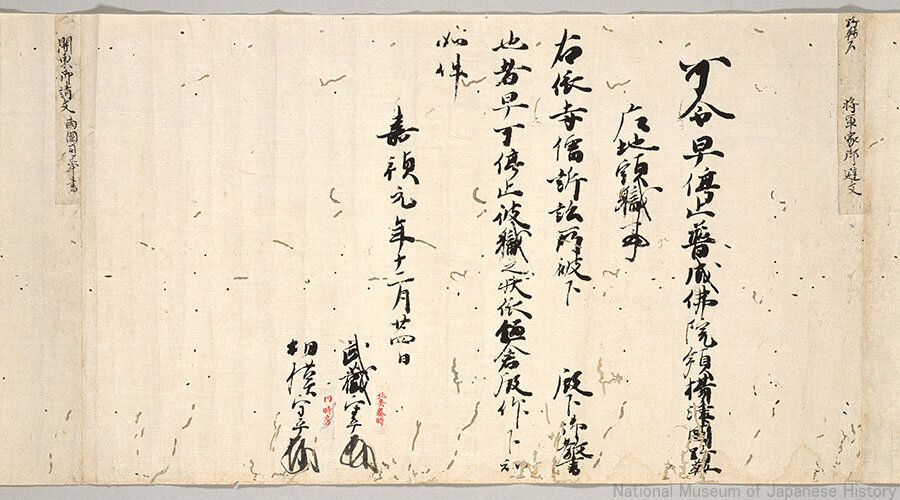 将軍家御避文
可令早停止普成佛院領摂津国
庄地頭職事
右依寺僧訴訟所被下　殿下御教書
也者早可停止彼職之状依鎌倉殿仰下知
如件
嘉禎元年十二月廿四日
武蔵守平
北条泰時
相模守平
同時房
関東御請文
National Museum of Japanese History